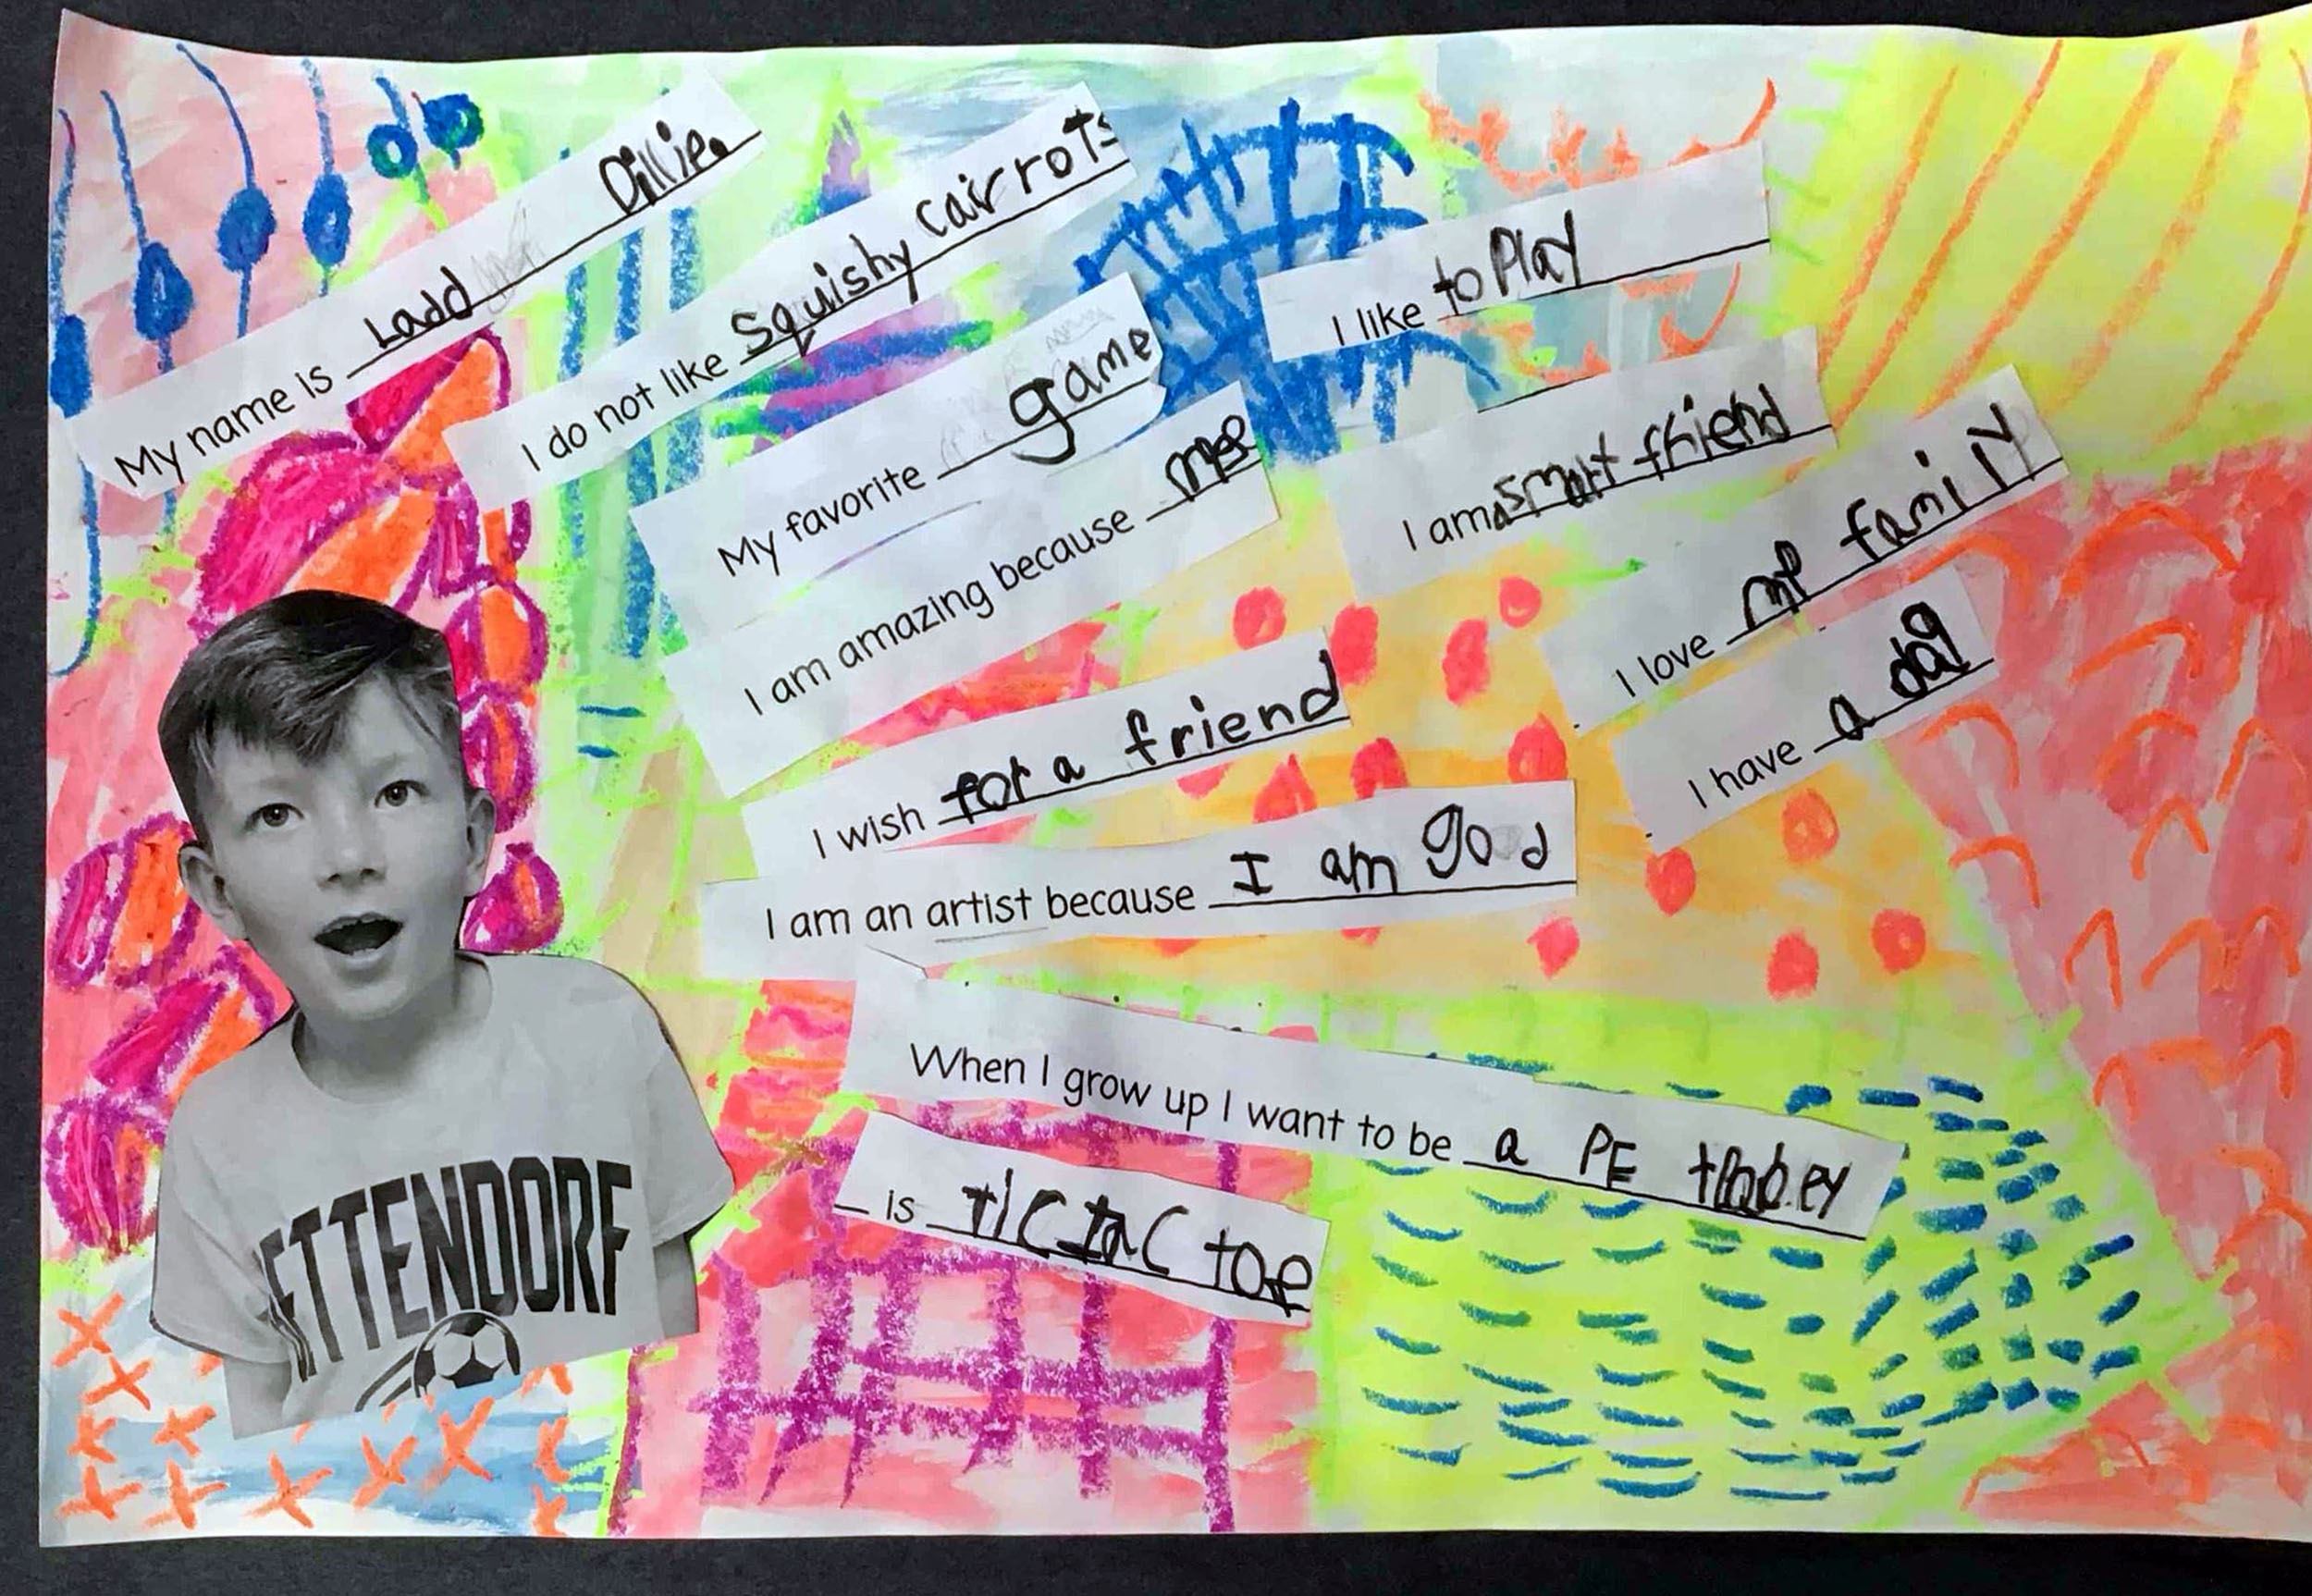 My name is Ladd Dillie.
I do not like squishy cairrots
My favorite game
I am amazing because me
I like to Play
I am a smart friend
I love my family
I have a dag
I wish for a friend
I am an artist because I am god
When I grow up I want to be a PE
is tic tac toe
ETTENDORF